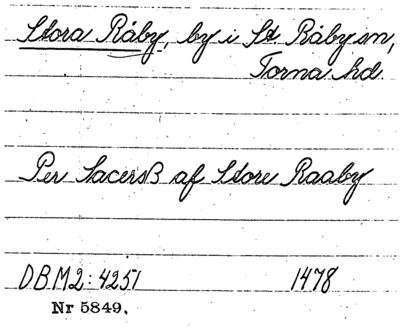 Stora Råby, by i St. Råby sn,
Torna hd.
Per Sacersß af Store Raaby
DBM2: 4251 1478
Nr 5849.